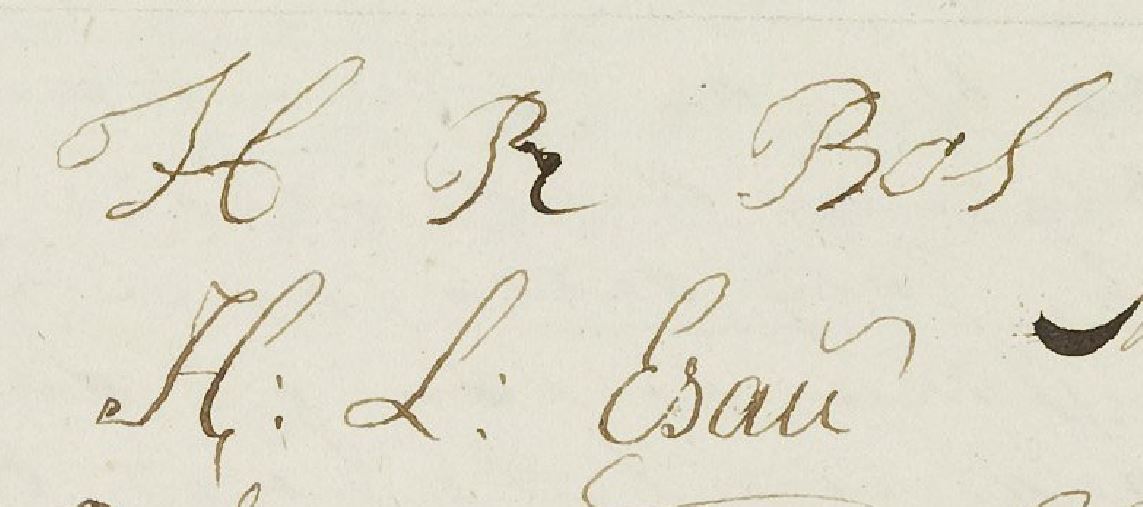 H R Bos
H: L: Esau